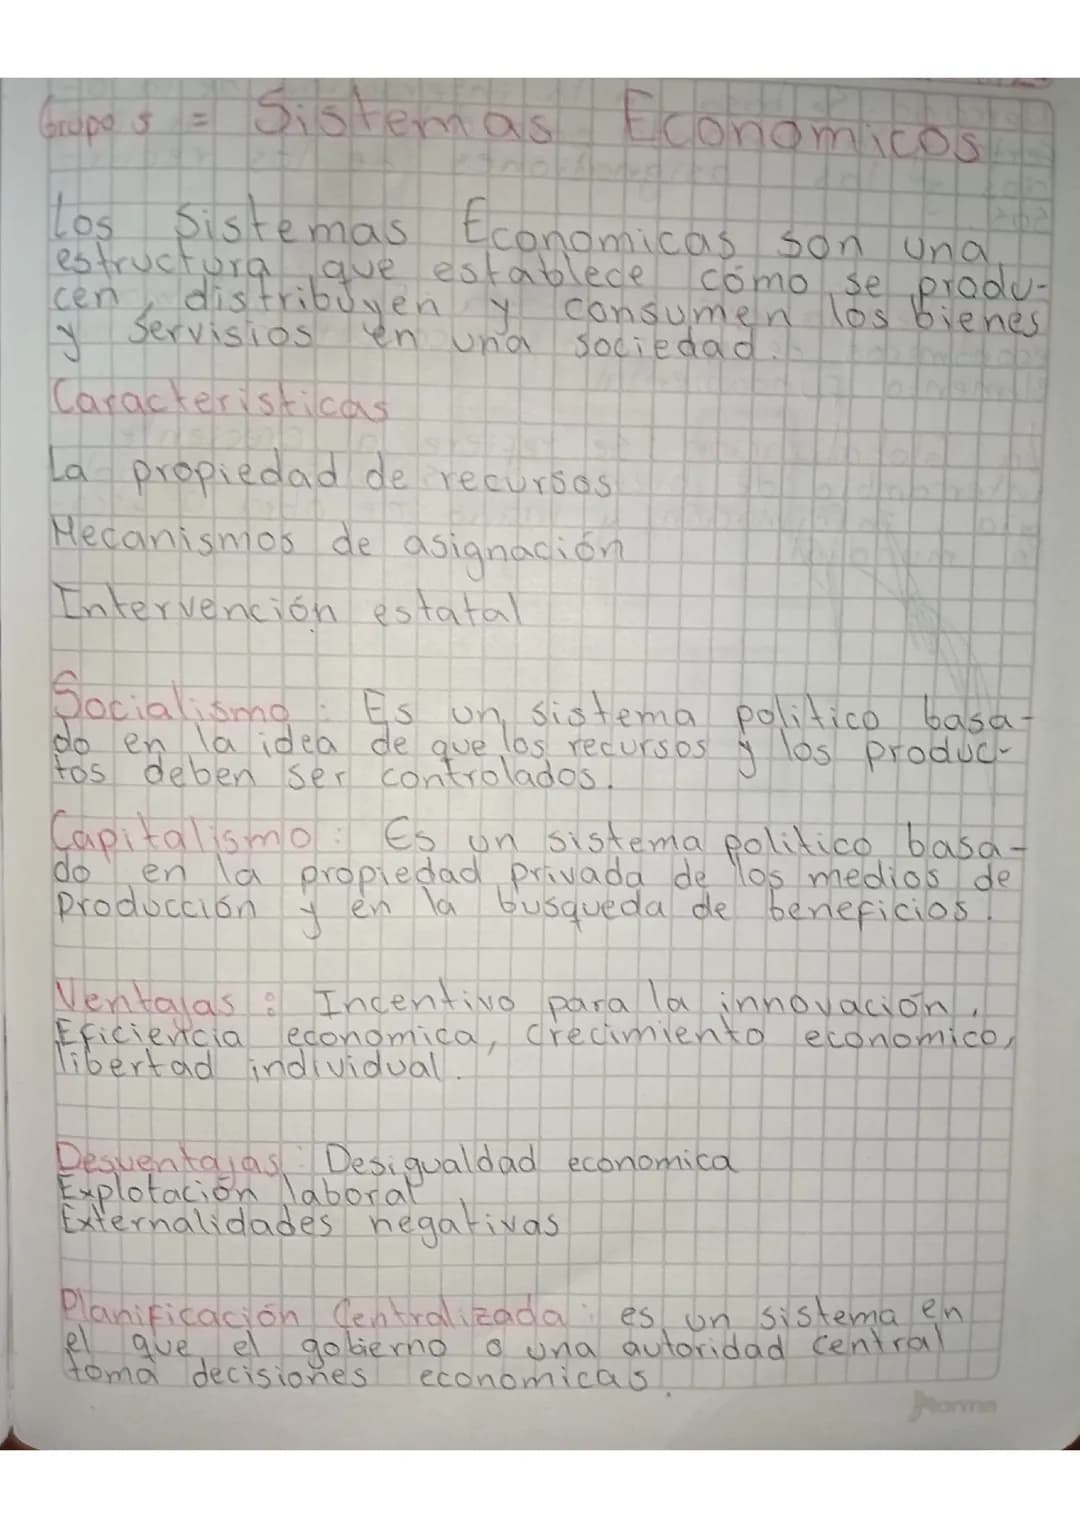 Grupo 5 = Sistemas Economicos
Los Sistemas Economicas son una
estructura que establece cómo se produ-
cen, distribuyen y consumen los bienes
y servisios en una sociedad.
Caracteristicas
La propiedad de recursos
Mecanismos de asignación
Intervención estatal
Socialismo: Es un sistema politico basa-
do en la idea de que los recursos y los produc-
tos deben ser controlados.
Capitalismo: Es un sistema politico basa-
do en la propiedad privada de los medios de
Producción y en la busqueda de beneficios.
Ventajas: Incentivo para la innovación,
Eficiencia economica, crecimiento economico,
libertad individual.
Desventajas: Desigualdad economica
Explotación laboral
Externalidades negativas
Planificación Centralizada: es un sistema en
el que el gobierno o una autoridad central
toma decisiones economicas.
Norma